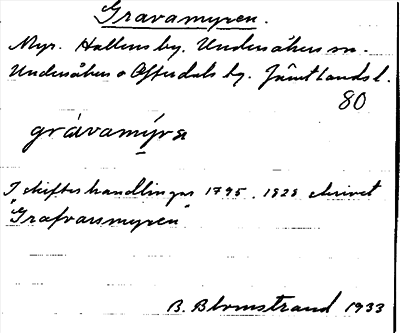 Gravamyren.
Myr. Hallens by. Undersåkers sn.
Undersåkers o Offerdals tg. Jämtlands l.
80
gràvamýra
I skifteshandlingar 1795. 1828 skrivet
"Grafvarsmyren"
B. Blomstrand 1933